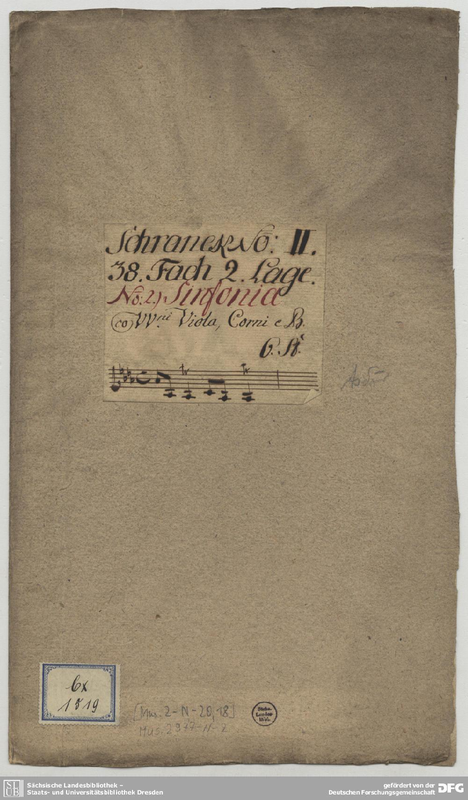 Schranck No: II.
38. Fach 2. Lage.
No: 2) Sinfonia
co VV.ni Viola, Corni e B.
6. St.
Cx
1519
Mus. 2-N-20,18
Sächsische Landesbibliothek –
Staats- und Universitätsbibliothek Dresden
gefördert von der
Deutschen Forschungsgemeinschaft
DFG